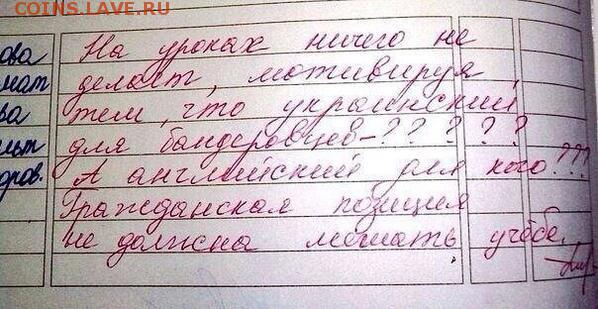 COINS.LAVE.RU
ова
мат
ва
льт
дров.
На уроках ничего не
делает, мотивируя
тем, что украинский
для бандеровцев-? ? ? ? ?
А английский для кого???
Гражданская позиция
не должна мешать учёбе.